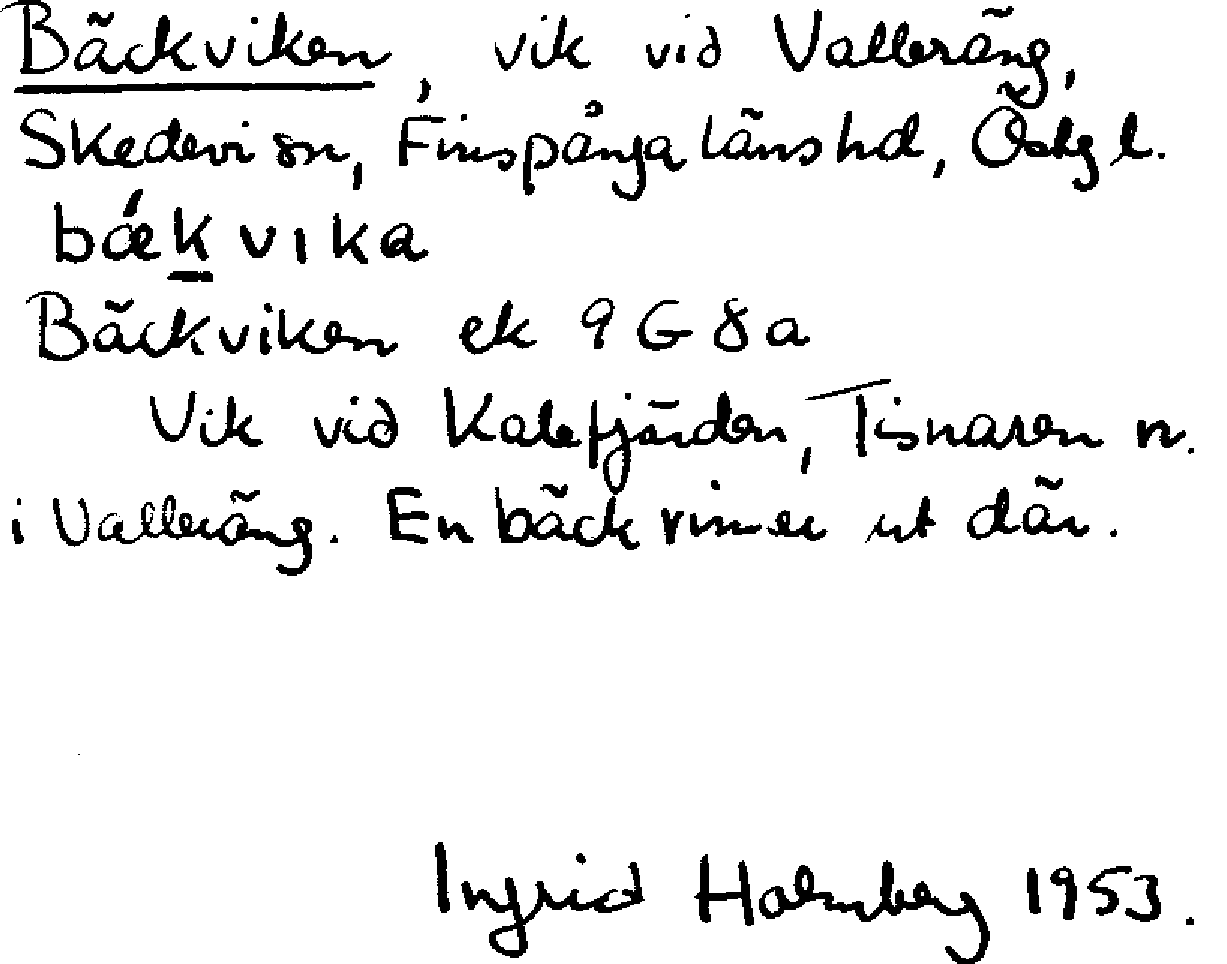 Bäckviken, vik vid Valleräng,
Skedevi sn, Finspånga länshd, Östg l.
bǽkvika
Bäckviken ek 9G8a
Vik vid Kalvfjärden, Tisnaren n.
i Valleräng. En bäck rinner ut där.
Ingrid Holmberg 1953.